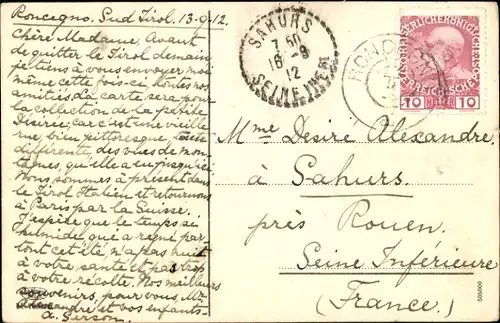 Roncegno. Sud Tirol. 13-9-12
Chère Madame, Avant
de quitter le Tirol demain,
je tiens à vous envoyer moi
même cette fois-ci, toutes nos
amitiés. La carte sera pour
la collection de la petite
Désirée, car c'est une vieille
rue bien pittoresque
différente, des vues de mon-
tagnes qu'elle a eu jusqu'ici.
Nous sommes à présent dans
le Tirol Italien et retournons
à Paris par la Suisse.
J'espère que le temps si
humide qui a régné par
tout cet été n'a pas nuit
à votre santé et pas trop
à votre récolte. Nos meilleurs
souvenirs, pour vous, Mr
Alexandre et vos enfants.
A. Gerson.
SAHURS
7 50
16 -9
12
SEINE INFRE
RONC
10 HELLER 10
Mme Désiré Alexandre.
à Sahurs.
près Rouen.
Seine Inférieure
(France.)